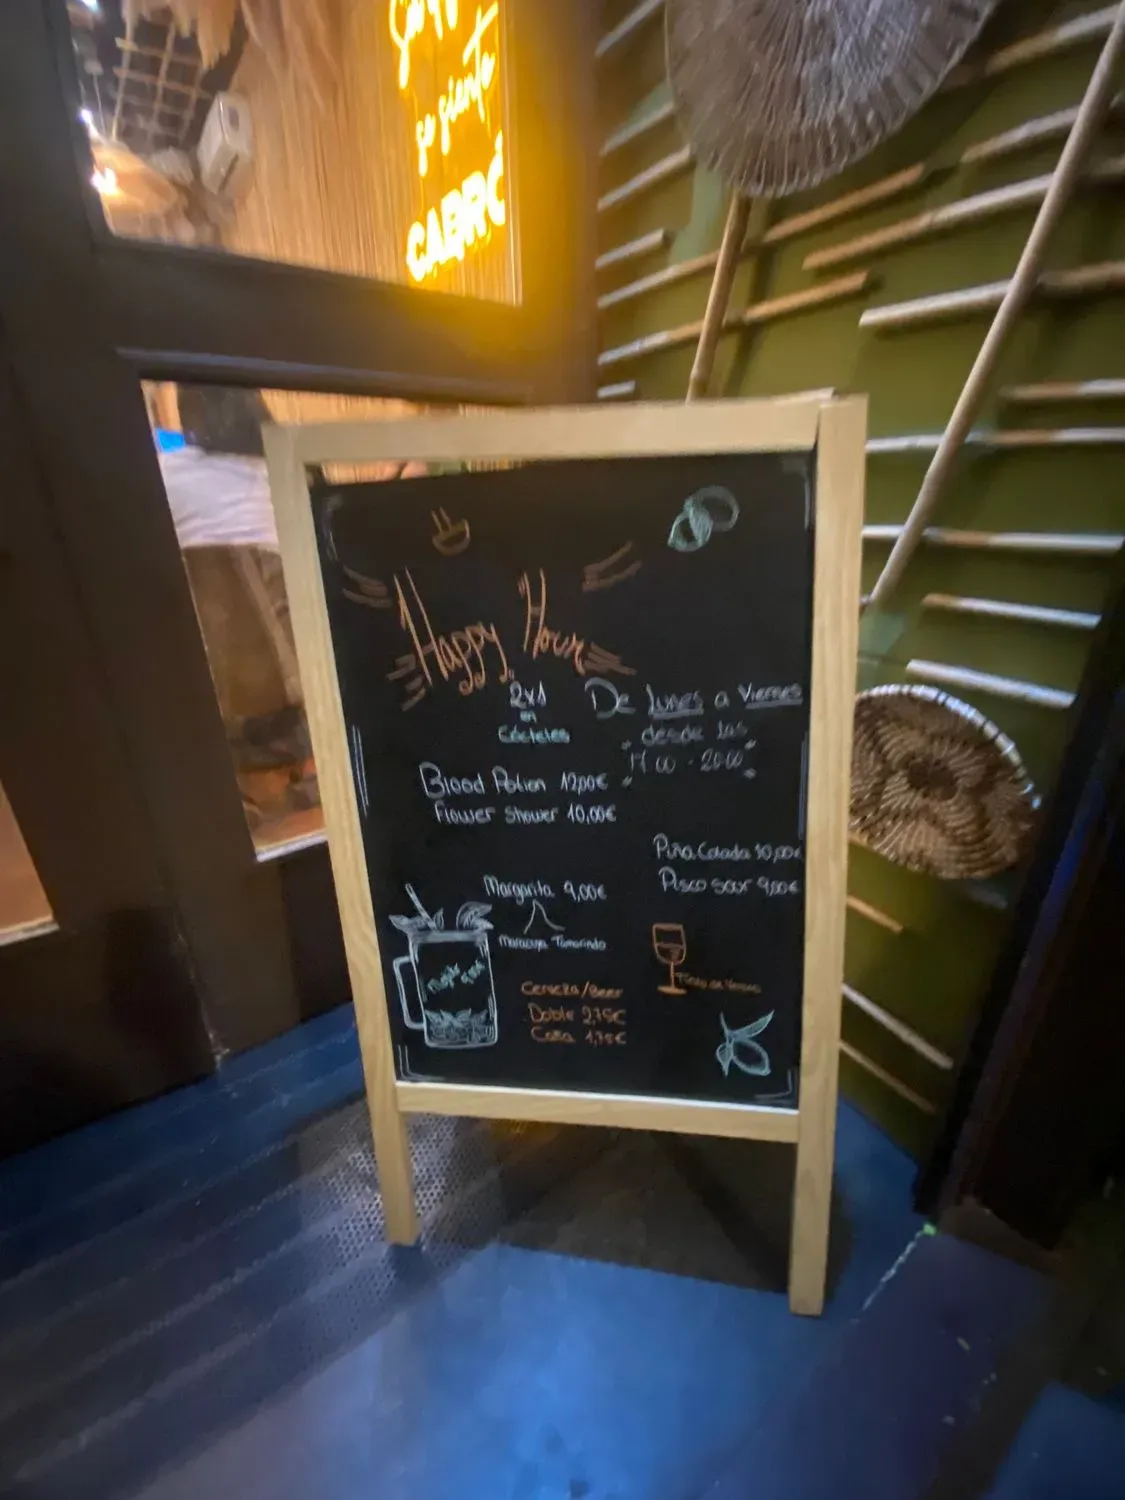 se siente
CABRÓ
Happy Hour
2x1
en
Cócteles
De Lunes a Viernes
desde las
17:00 - 20:00
Blood Potion 12,00€
Flower Shower 10,00€
Piña Colada 10,00€
Pisco sour 9,00€
Margarita 9,00€
Maracuya Tamarindo
Mojito
9,00€
Tinto de Verano
Cerveza/Beer
Doble 2,75€
Caña 1,75€